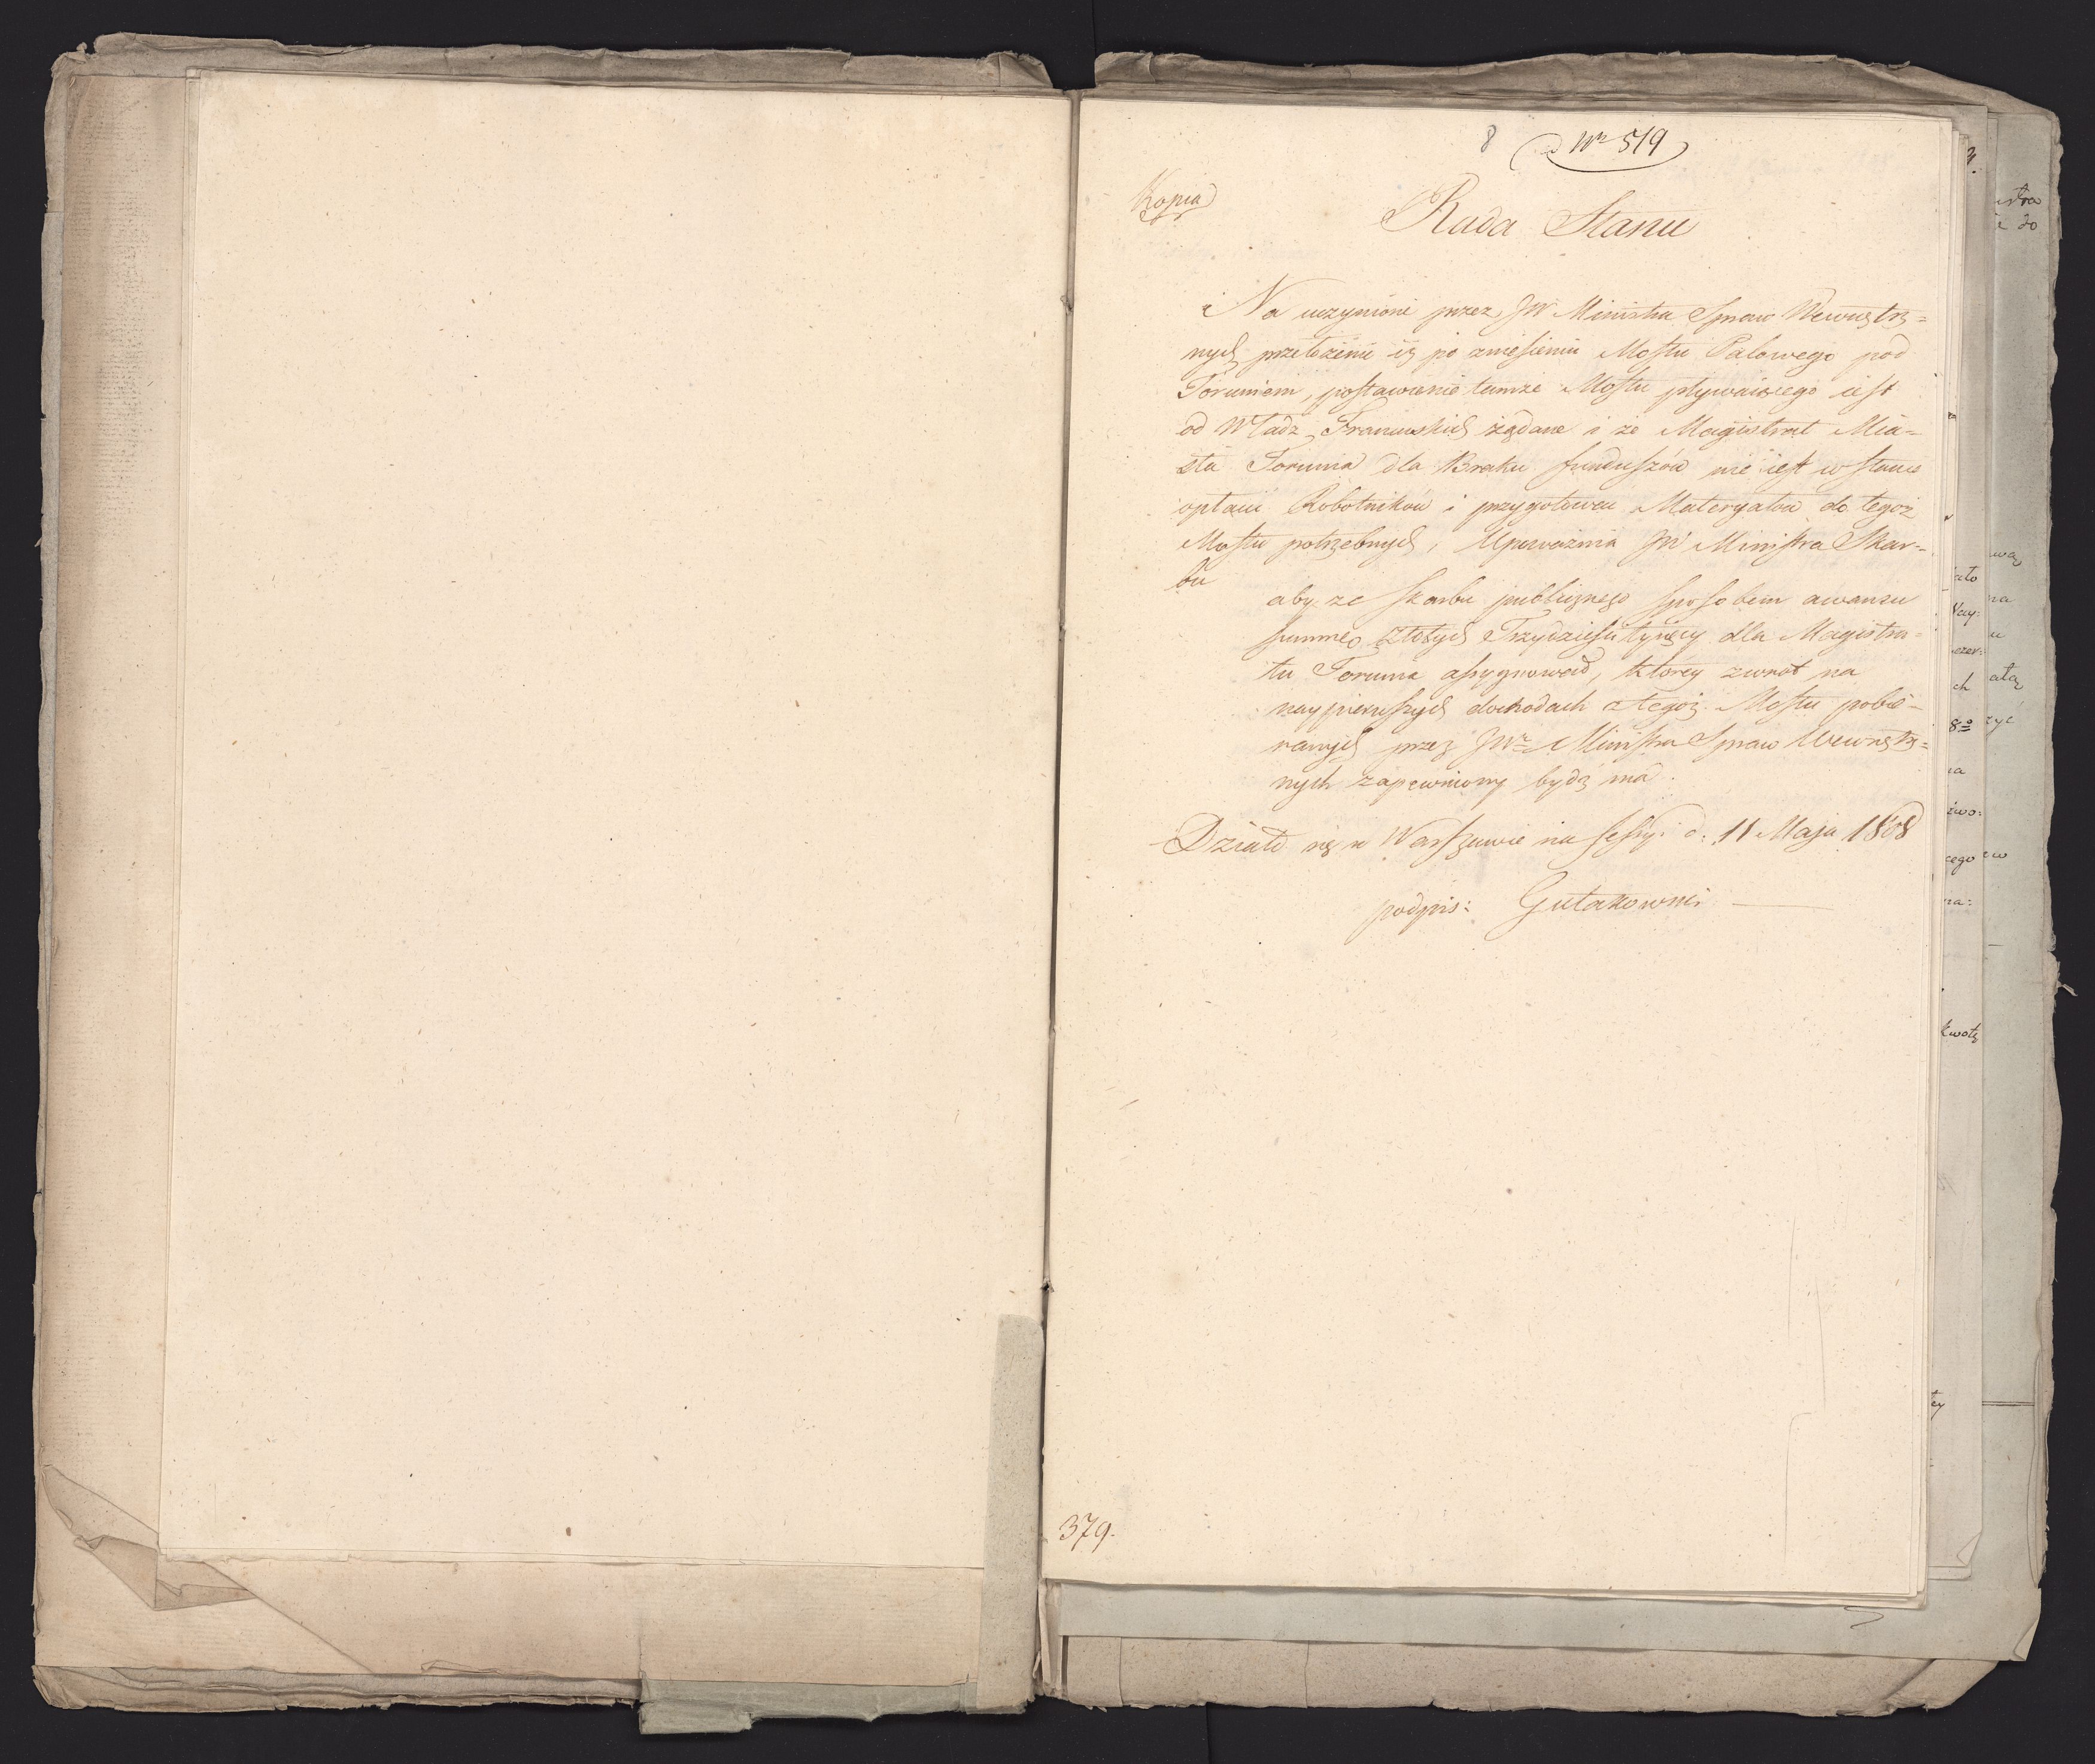 8 ad Nr 519
Kopia
Rada Stanu
Na uczynione przez JW Ministra Spraw Wewnętrz=
nych przełożenie iż po zniesieniu Mostu Palowego pod
Toruniem, postawienie tamże Mostu pływaiącego iest
od Władz Francuskich żądane i że Magistrat Mia=
sta Torunia dla Braku funduszów nie iest w stanie
opłacić Robotników i przygotować Materyałów do tegoż
Mostu potrzebnych, Upoważnia JW Ministra Skar=
bu
aby ze skarbu publicznego sposobem awansu
summę Złotych Trzydzieści tysięcy dla Magistra=
tu Torunia assygnował, którey zwrot na
naypierwszych dochodach z tegoż Mostu pobie=
ranych przez JWo Ministra Spraw Wewnętrz=
nych zapewniony bydź ma.
Działo się w Warszawie na sessyi d. 11 Maja 1808
podpis: Gutakowski
379.
ato
Nay:
ch
8o
na
cego
na:
kwotę
do
wą
na
atą